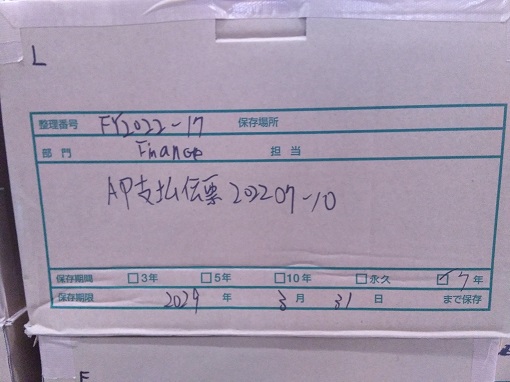 L
整理番号 FY2022-17 保存場所
部門 Finance 担当
AP支払伝票 202207-10
保存期間 □3年 □5年 □10年 □永久 ☑7年
保存期限 2029年 3月 31日 まで保存